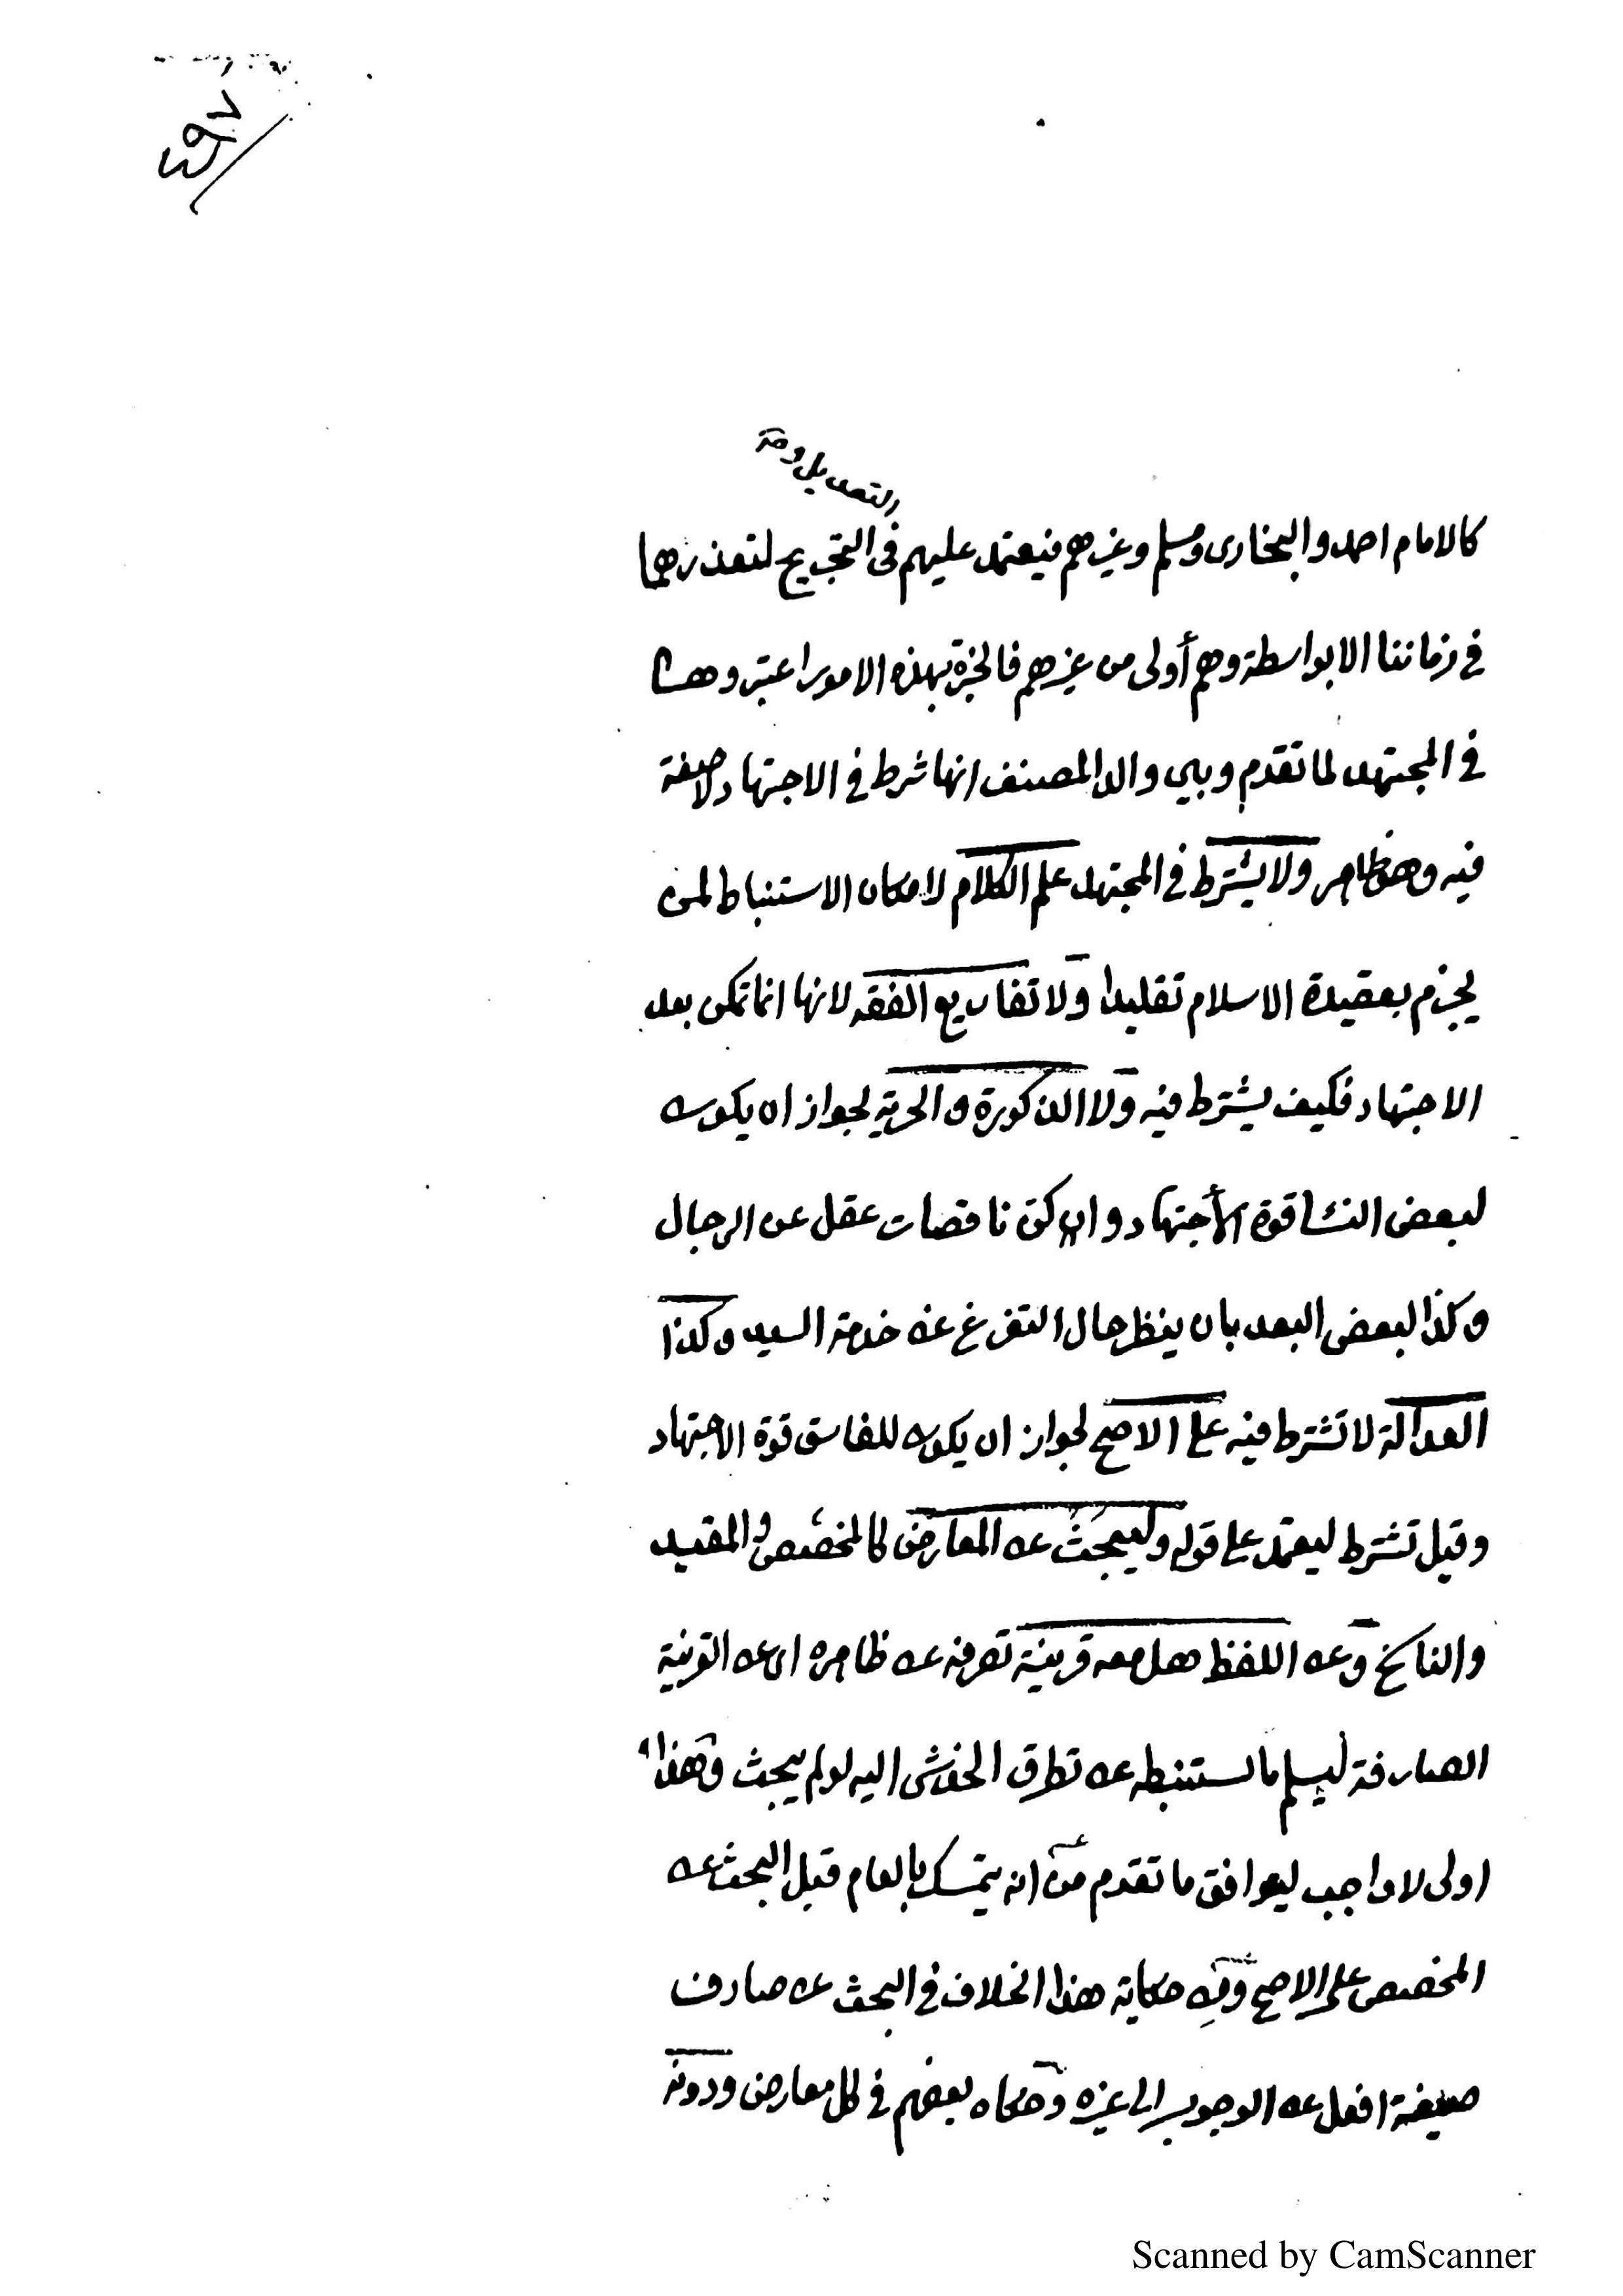 والتعديل
كالامام احمد والبخارى ومسلم وغيرهم فيعتمد عليهم فى التجريح لتعذرهما
في زماننا الا بواسطة وهم أولى من غيرهم فالخبرة بهذه الامور اعتبروها
في المجتهد لما تقدم وبين والد المصنف انها شرط في الاجتهاد لا صفة
فيه وهو ظاهر ولا يشترط في المجتهد علم الكلام لامكان الاستنباط لمن
يجزم بعقيدة الاسلام تقليدا ولا تفاريع الفقه لانها انما تمكن بعد
الاجتهاد فكيف يشترط فيه ولا الذكورة والحرية لجواز ان يكون
لبعض النسا قوة الأجتهاد وان كن ناقصات عقل عن الرجال
وكذا لبعض العبد بان ينظر حال التفرغ عن خدمة السيد وكذا
العدالة لا تشترط فيه على الاصح لجواز ان يكون للفاسق قوة الاجتهاد
وقيل تشترط ليعتمد على قوله وليبحث عن المعارض كالمخصص والمقيد
والناسخ وعن اللفظ هل معه قرينة تصرفه عن ظاهره اى عن القرينة
الصارفة ليسلم ما يستنبطه عن تطرق الخدش اليه لو لم يبحث وهذا
اولى لا واجب ليوافق ما تقدم من انه يتمسك بالعام قبل البحث عن
المخصص على الاصح حكاية هذا الخلاف في البحث عن صارف
صيغة افعل عن الوجوب الى غيره وحكاه بعضهم في كل معارض ودونه
Scanned by CamScanner